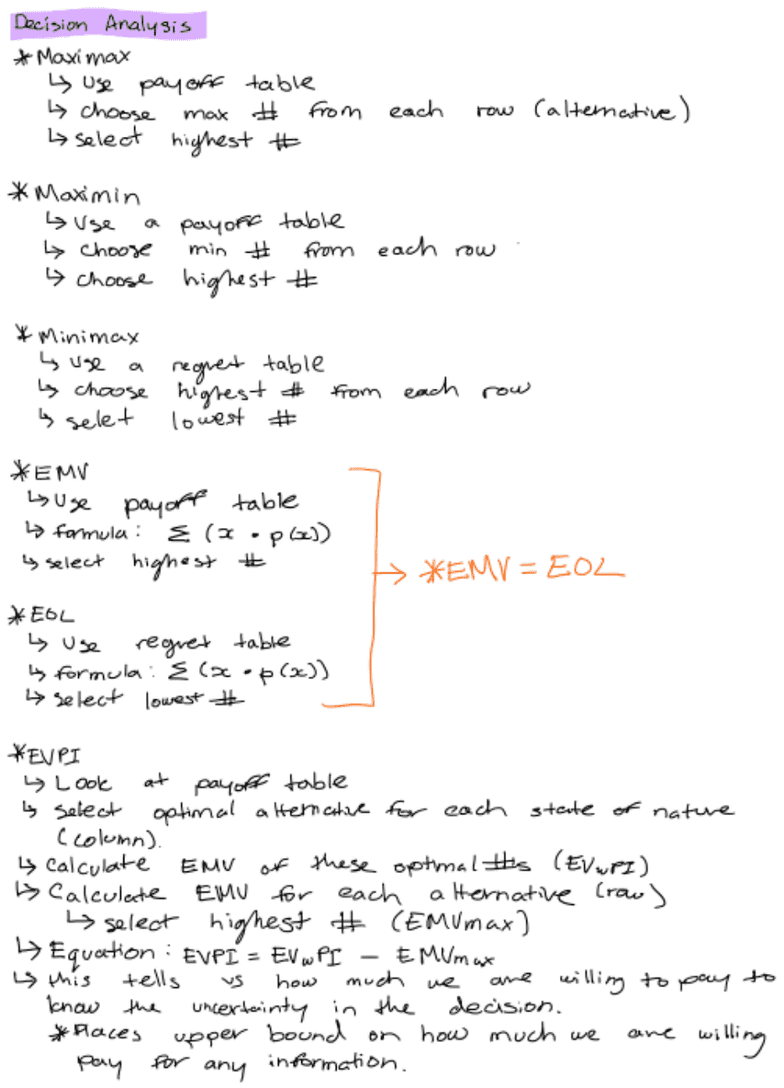 Decision Analysis
*Maximax
↳ Use payoff table
↳ choose max # from each row (alternative)
↳ select highest #
*Maximin
↳ Use a payoff table
↳ choose min # from each row
↳ choose highest #
*Minimax
↳ use a regret table
↳ choose highest # from each row
↳ select lowest #
*EMV
↳ Use payoff table
↳ formula: Σ (x • p(x))
↳ select highest #
*EMV = EOL
*EOL
↳ Use regret table
↳ formula: Σ (x • p(x))
↳ select lowest #
*EVPI
↳ Look at payoff table
↳ select optimal alternative for each state of nature
(column).
↳ calculate EMV of these optimal #s (EVwPI)
↳ Calculate EMV for each alternative (row)
↳ select highest # (EMVmax)
↳ Equation: EVPI = EVwPI - EMVmax
↳ this tells us how much we are willing to pay to
know the uncertainty in the decision.
*Places upper bound on how much we are willing
pay for any information.